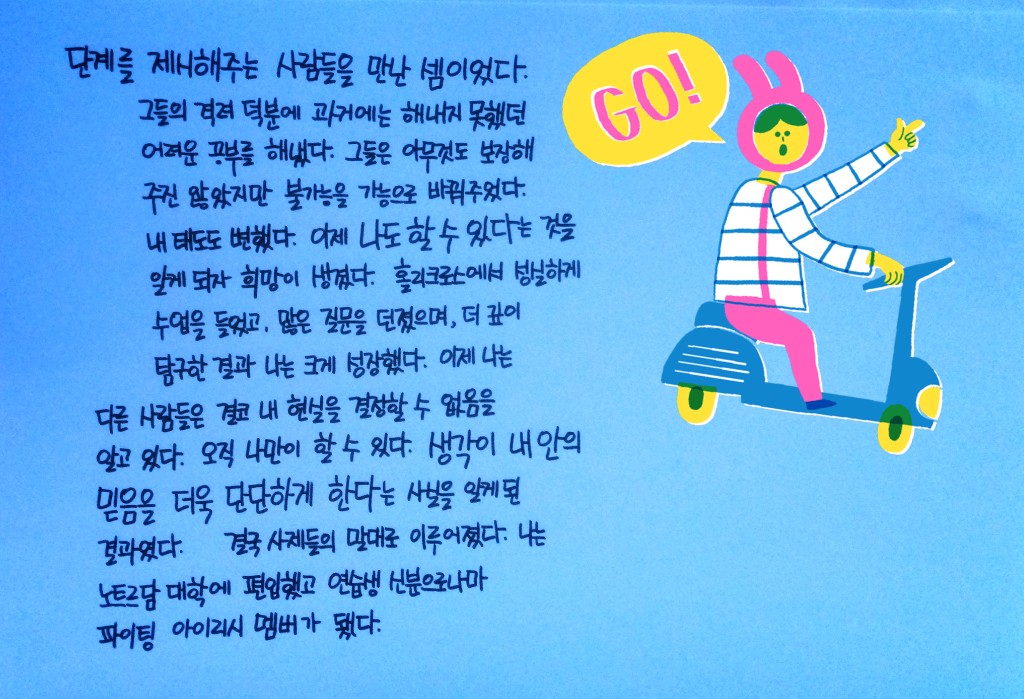 단계를 제시해주는 사람들을 만난 셈이었다.
GO!
그들의 격려 덕분에 과거에는 해내지 못했던
어려운 공부를 해냈다. 그들은 아무것도 보장해
주진 않았지만 불가능을 가능으로 바꿔주었다.
내 태도도 변했다. 이제 나도 할 수 있다는 것을
알게 되자 희망이 생겼다. 홀리크로스에서 성실하게
수업을 들었고, 많은 질문을 던졌으며, 더 깊이
탐구한 결과 나는 크게 성장했다. 이제 나는
다른 사람들은 결코 내 현실을 결정할 수 없음을
알고 있다. 오직 나만이 할 수 있다. 생각이 내 안의
믿음을 더욱 단단하게 한다는 사실을 알게 된
결과였다. 결국 사제들의 말대로 이루어졌다. 나는
노트르담 대학에 편입했고 연습생 신분으로나마
파이팅 아이리시 멤버가 됐다.